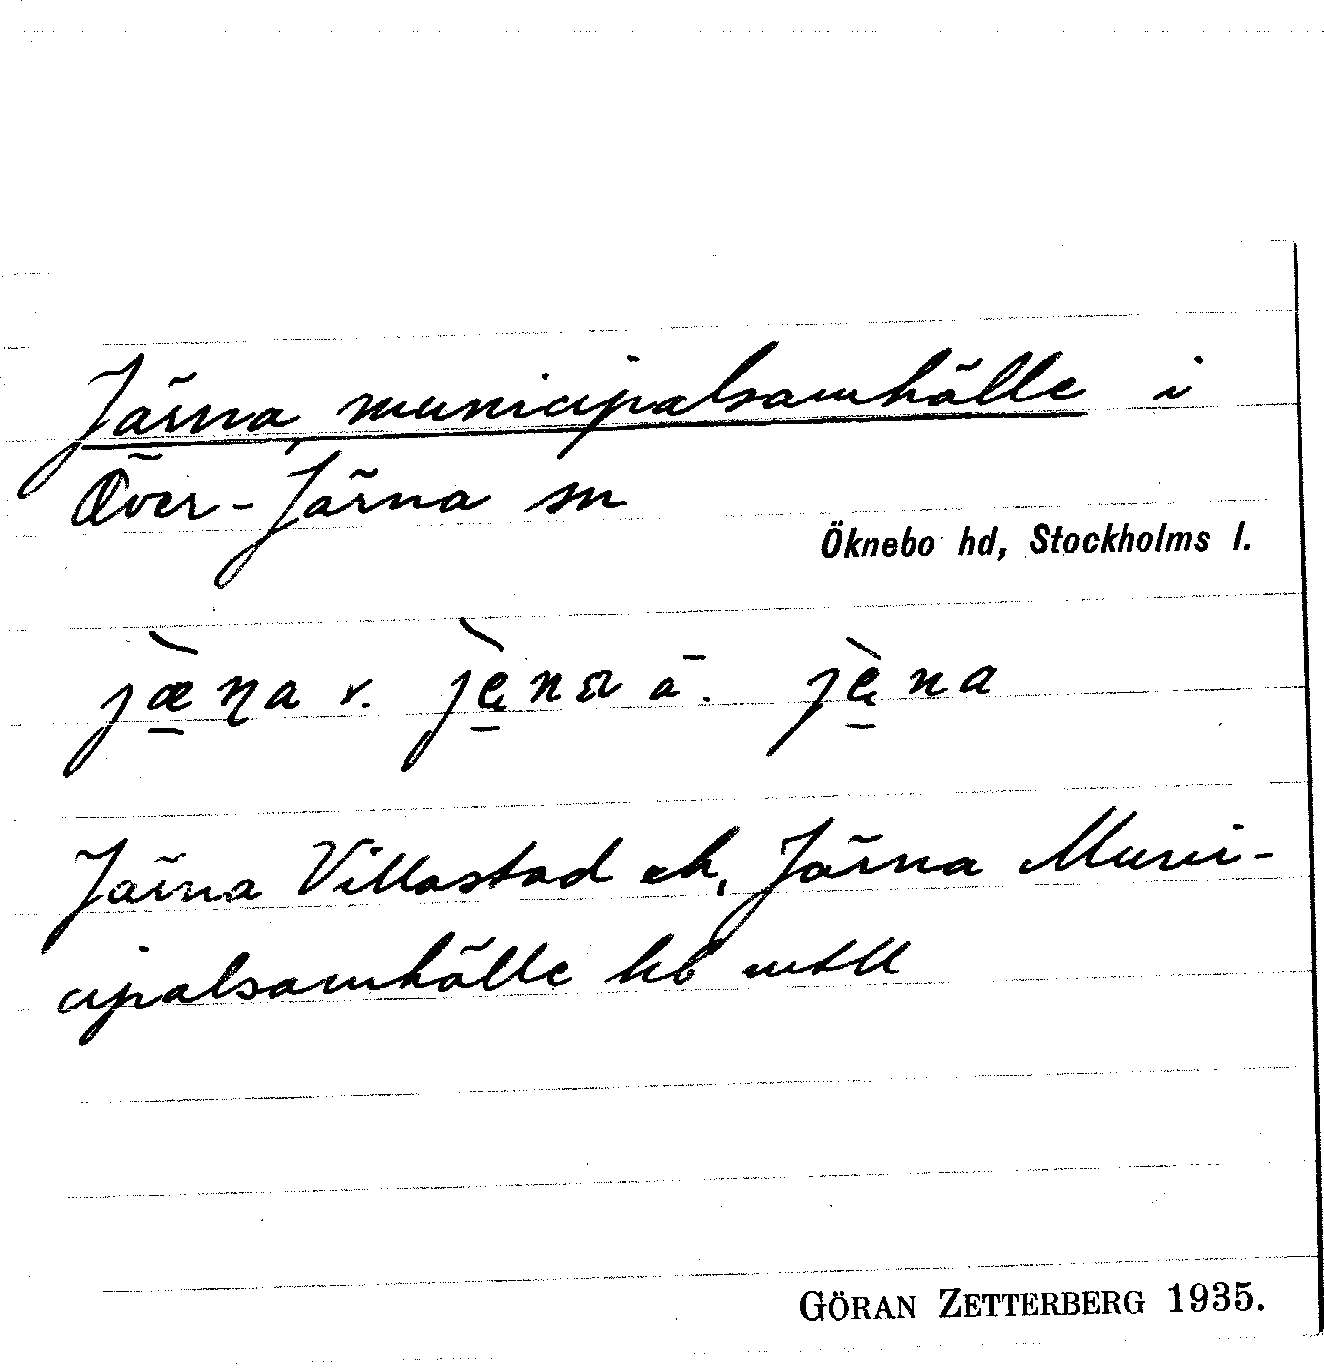 Järna, municipalsamhälle i
Över-Järna sn
Öknebo hd, Stockholms l.
jæ̀ɳa v. jè̱na ä. jè̱na
Järna Villastad ek, Järna Muni-
cipalsamhälle hb mtll
GÖRAN ZETTERBERG 1935.